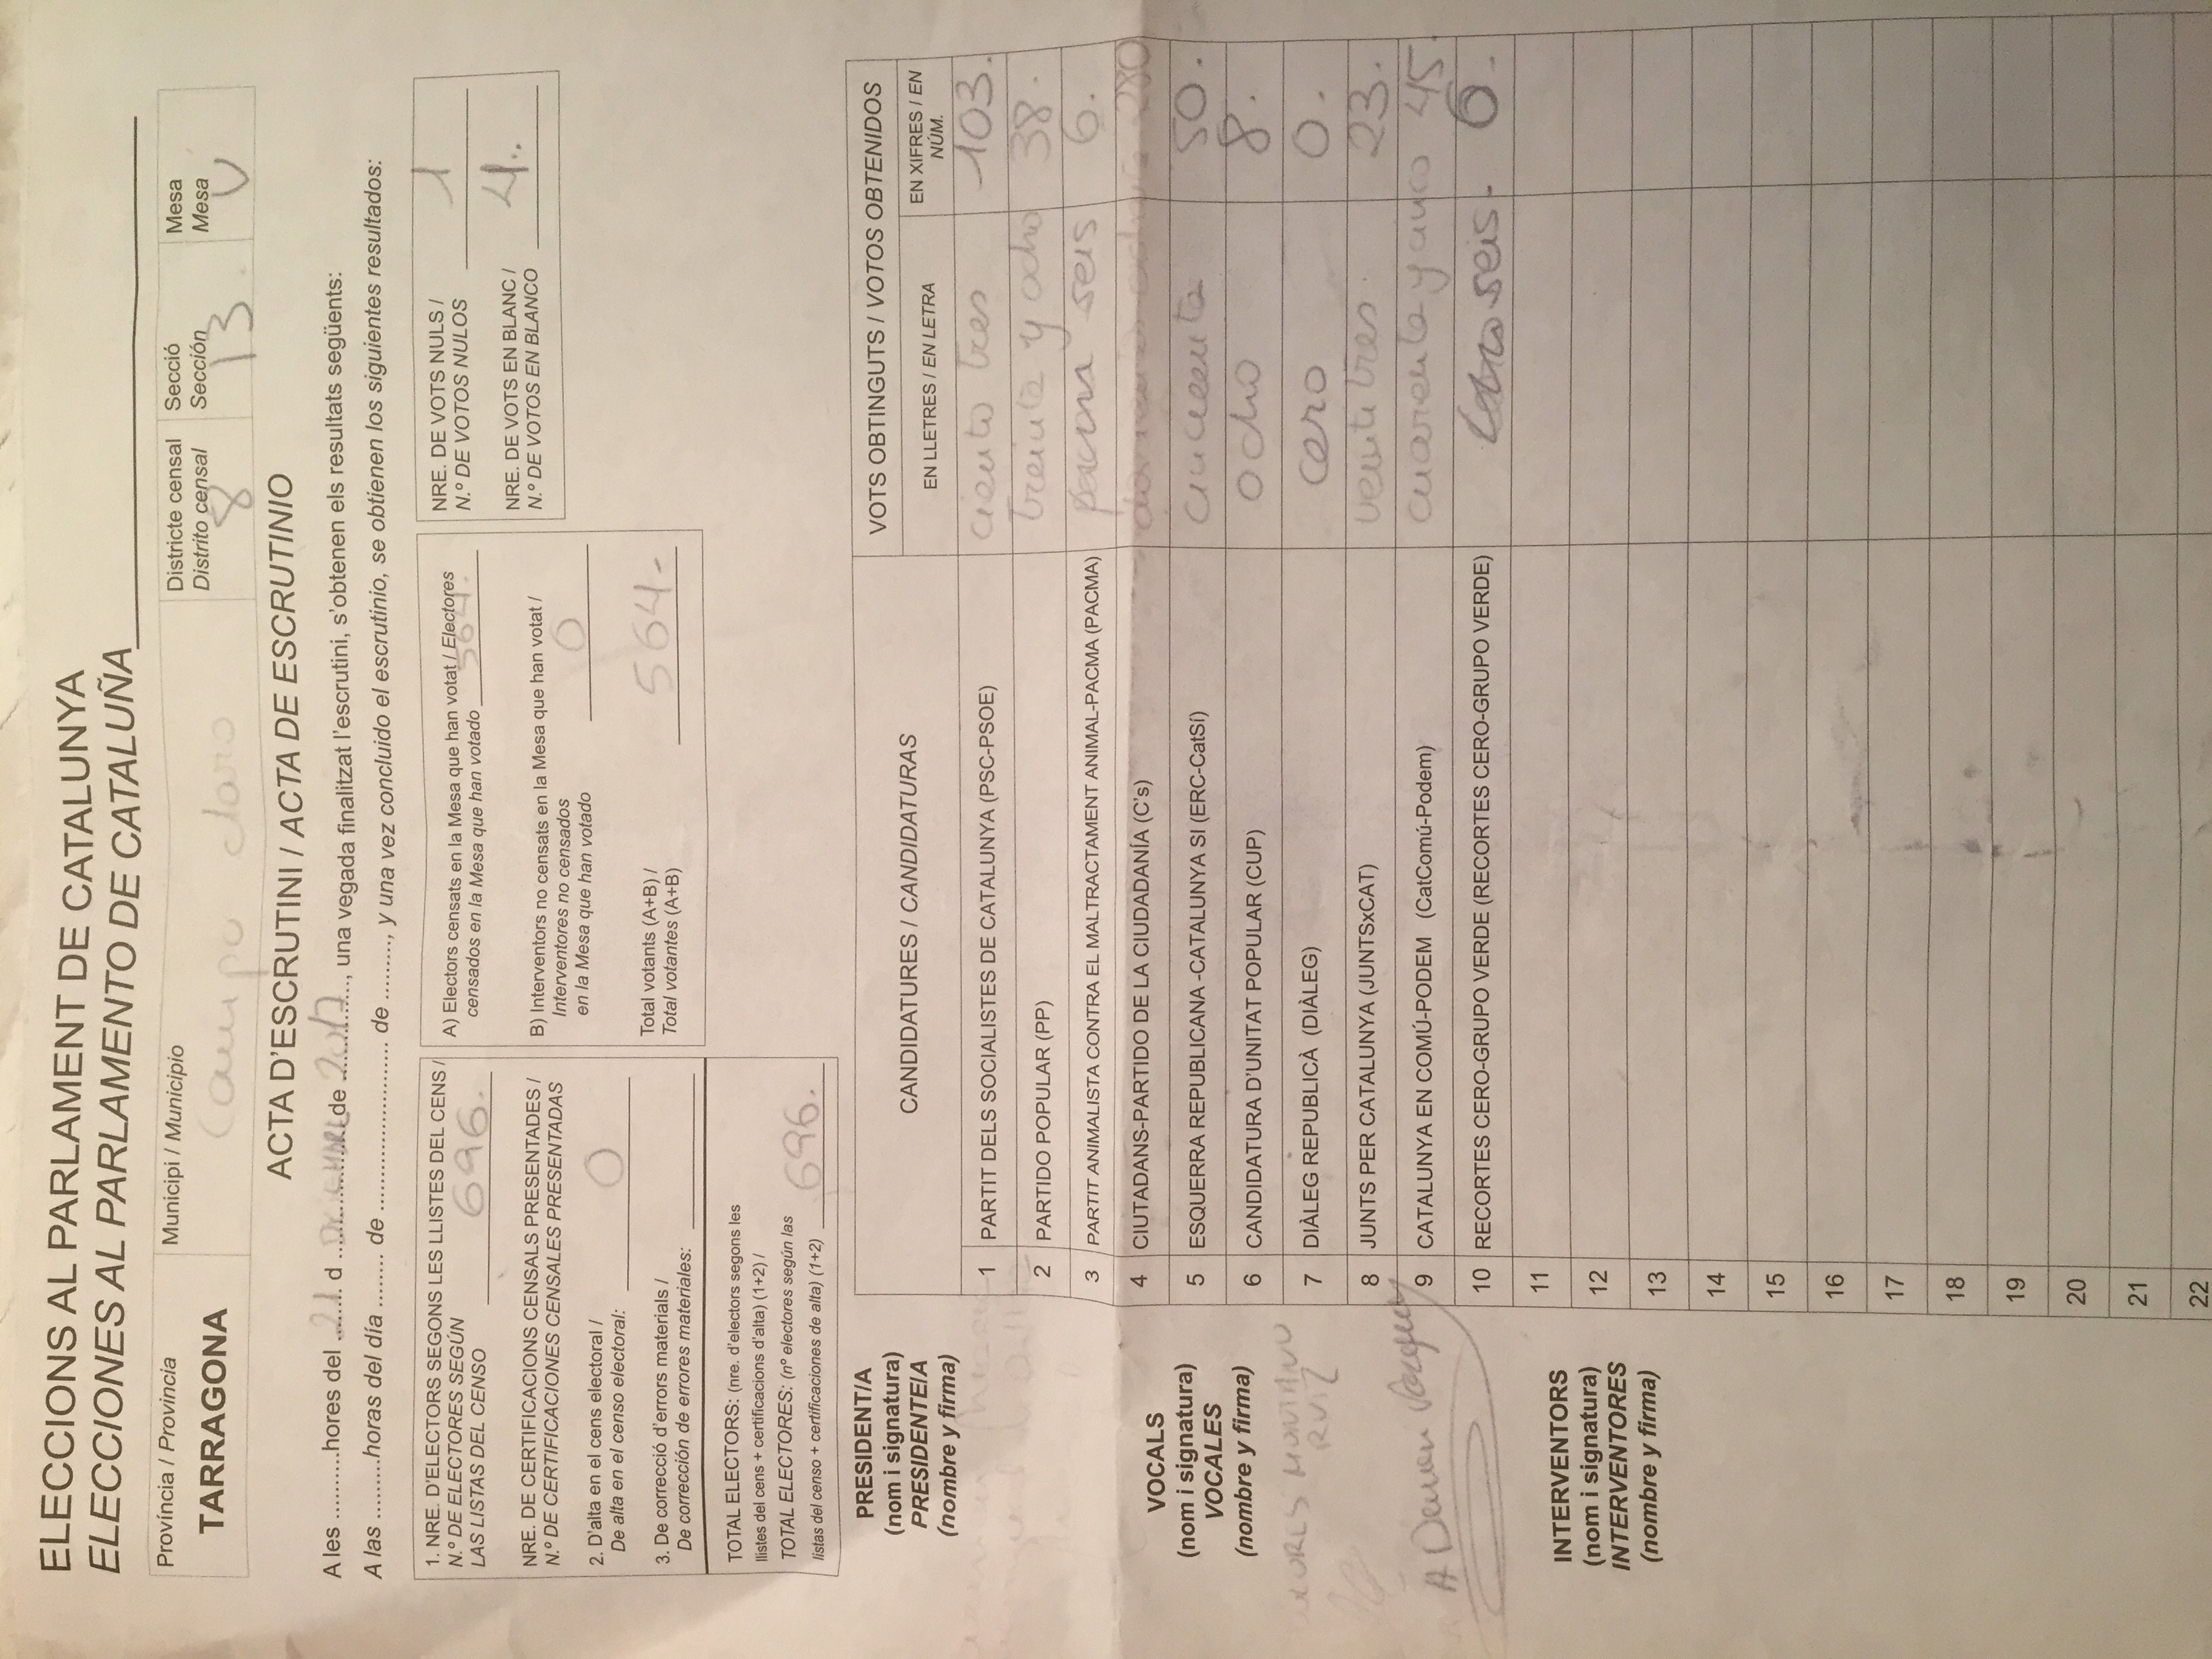 ELECCIONS AL PARLAMENT DE CATALUNYA
ELECCIONES AL PARLAMENTO DE CATALUÑA
Província / Provincia
TARRAGONA
Municipi / Municipio
Campo claro
Districte censal
Distrito censal
8
Secció
Sección
13.
Mesa
Mesa
U
ACTA D'ESCRUTINI / ACTA DE ESCRUTINIO
A les ..........hores del ...21... d ...DICIEMBRE...de ...2017..., una vegada finalitzat l'escrutini, s'obtenen els resultats següents:
A las .........horas del día ........ de ........................... de ........., y una vez concluido el escrutinio, se obtienen los siguientes resultados:
1. NRE. D'ELECTORS SEGONS LES LLISTES DEL CENS /
N.º DE ELECTORES SEGÚN
LAS LISTAS DEL CENSO 696.
NRE. DE CERTIFICACIONS CENSALS PRESENTADES /
N.º DE CERTIFICACIONES CENSALES PRESENTADAS
2. D'alta en el cens electoral /
De alta en el censo electoral: 0
3. De correcció d'errors materials /
De corrección de errores materiales:
TOTAL ELECTORS: (nre. d'electors segons les
llistes del cens + certificacions d'alta) (1+2) /
TOTAL ELECTORES: (nº electores según las
listas del censo + certificaciones de alta) (1+2) 696.
A) Electors censats en la Mesa que han votat / Electores
censados en la Mesa que han votado 564.
B) Interventors no censats en la Mesa que han votat /
Interventores no censados
en la Mesa que han votado 0
Total votants (A+B) /
Total votantes (A+B) 564-
NRE. DE VOTS NULS /
N.º DE VOTOS NULOS 1
NRE. DE VOTS EN BLANC /
N.º DE VOTOS EN BLANCO 4..
PRESIDENT/A
(nom i signatura)
PRESIDENTE/A
(nombre y firma)
VOCALS
(nom i signatura)
VOCALES
(nombre y firma)
MONTANO
RUIZ
INTERVENTORS
(nom i signatura)
INTERVENTORES
(nombre y firma)
CANDIDATURES / CANDIDATURAS
VOTS OBTINGUTS / VOTOS OBTENIDOS
EN LLETRES / EN LETRA
EN XIFRES / EN
NÚM.
1 PARTIT DELS SOCIALISTES DE CATALUNYA (PSC-PSOE) ciento tres 103.
2 PARTIDO POPULAR (PP) treinta y ocho 38.
3 PARTIT ANIMALISTA CONTRA EL MALTRACTAMENT ANIMAL-PACMA (PACMA) seis 6.
4 CIUTADANS-PARTIDO DE LA CIUDADANÍA (C's) 280
5 ESQUERRA REPUBLICANA -CATALUNYA SI (ERC-CatSí) cincuenta 50.
6 CANDIDATURA D'UNITAT POPULAR (CUP) ocho 8.
7 DIÀLEG REPUBLICÀ (DIÀLEG) cero 0.
8 JUNTS PER CATALUNYA (JUNTSxCAT) veinte tres. 23.
9 CATALUNYA EN COMÚ-PODEM (CatComú-Podem) cuarenta y cinco 45.
10 RECORTES CERO-GRUPO VERDE (RECORTES CERO-GRUPO VERDE) seis. 6.
11
12
13
14
15
16
17
18
19
20
21
22